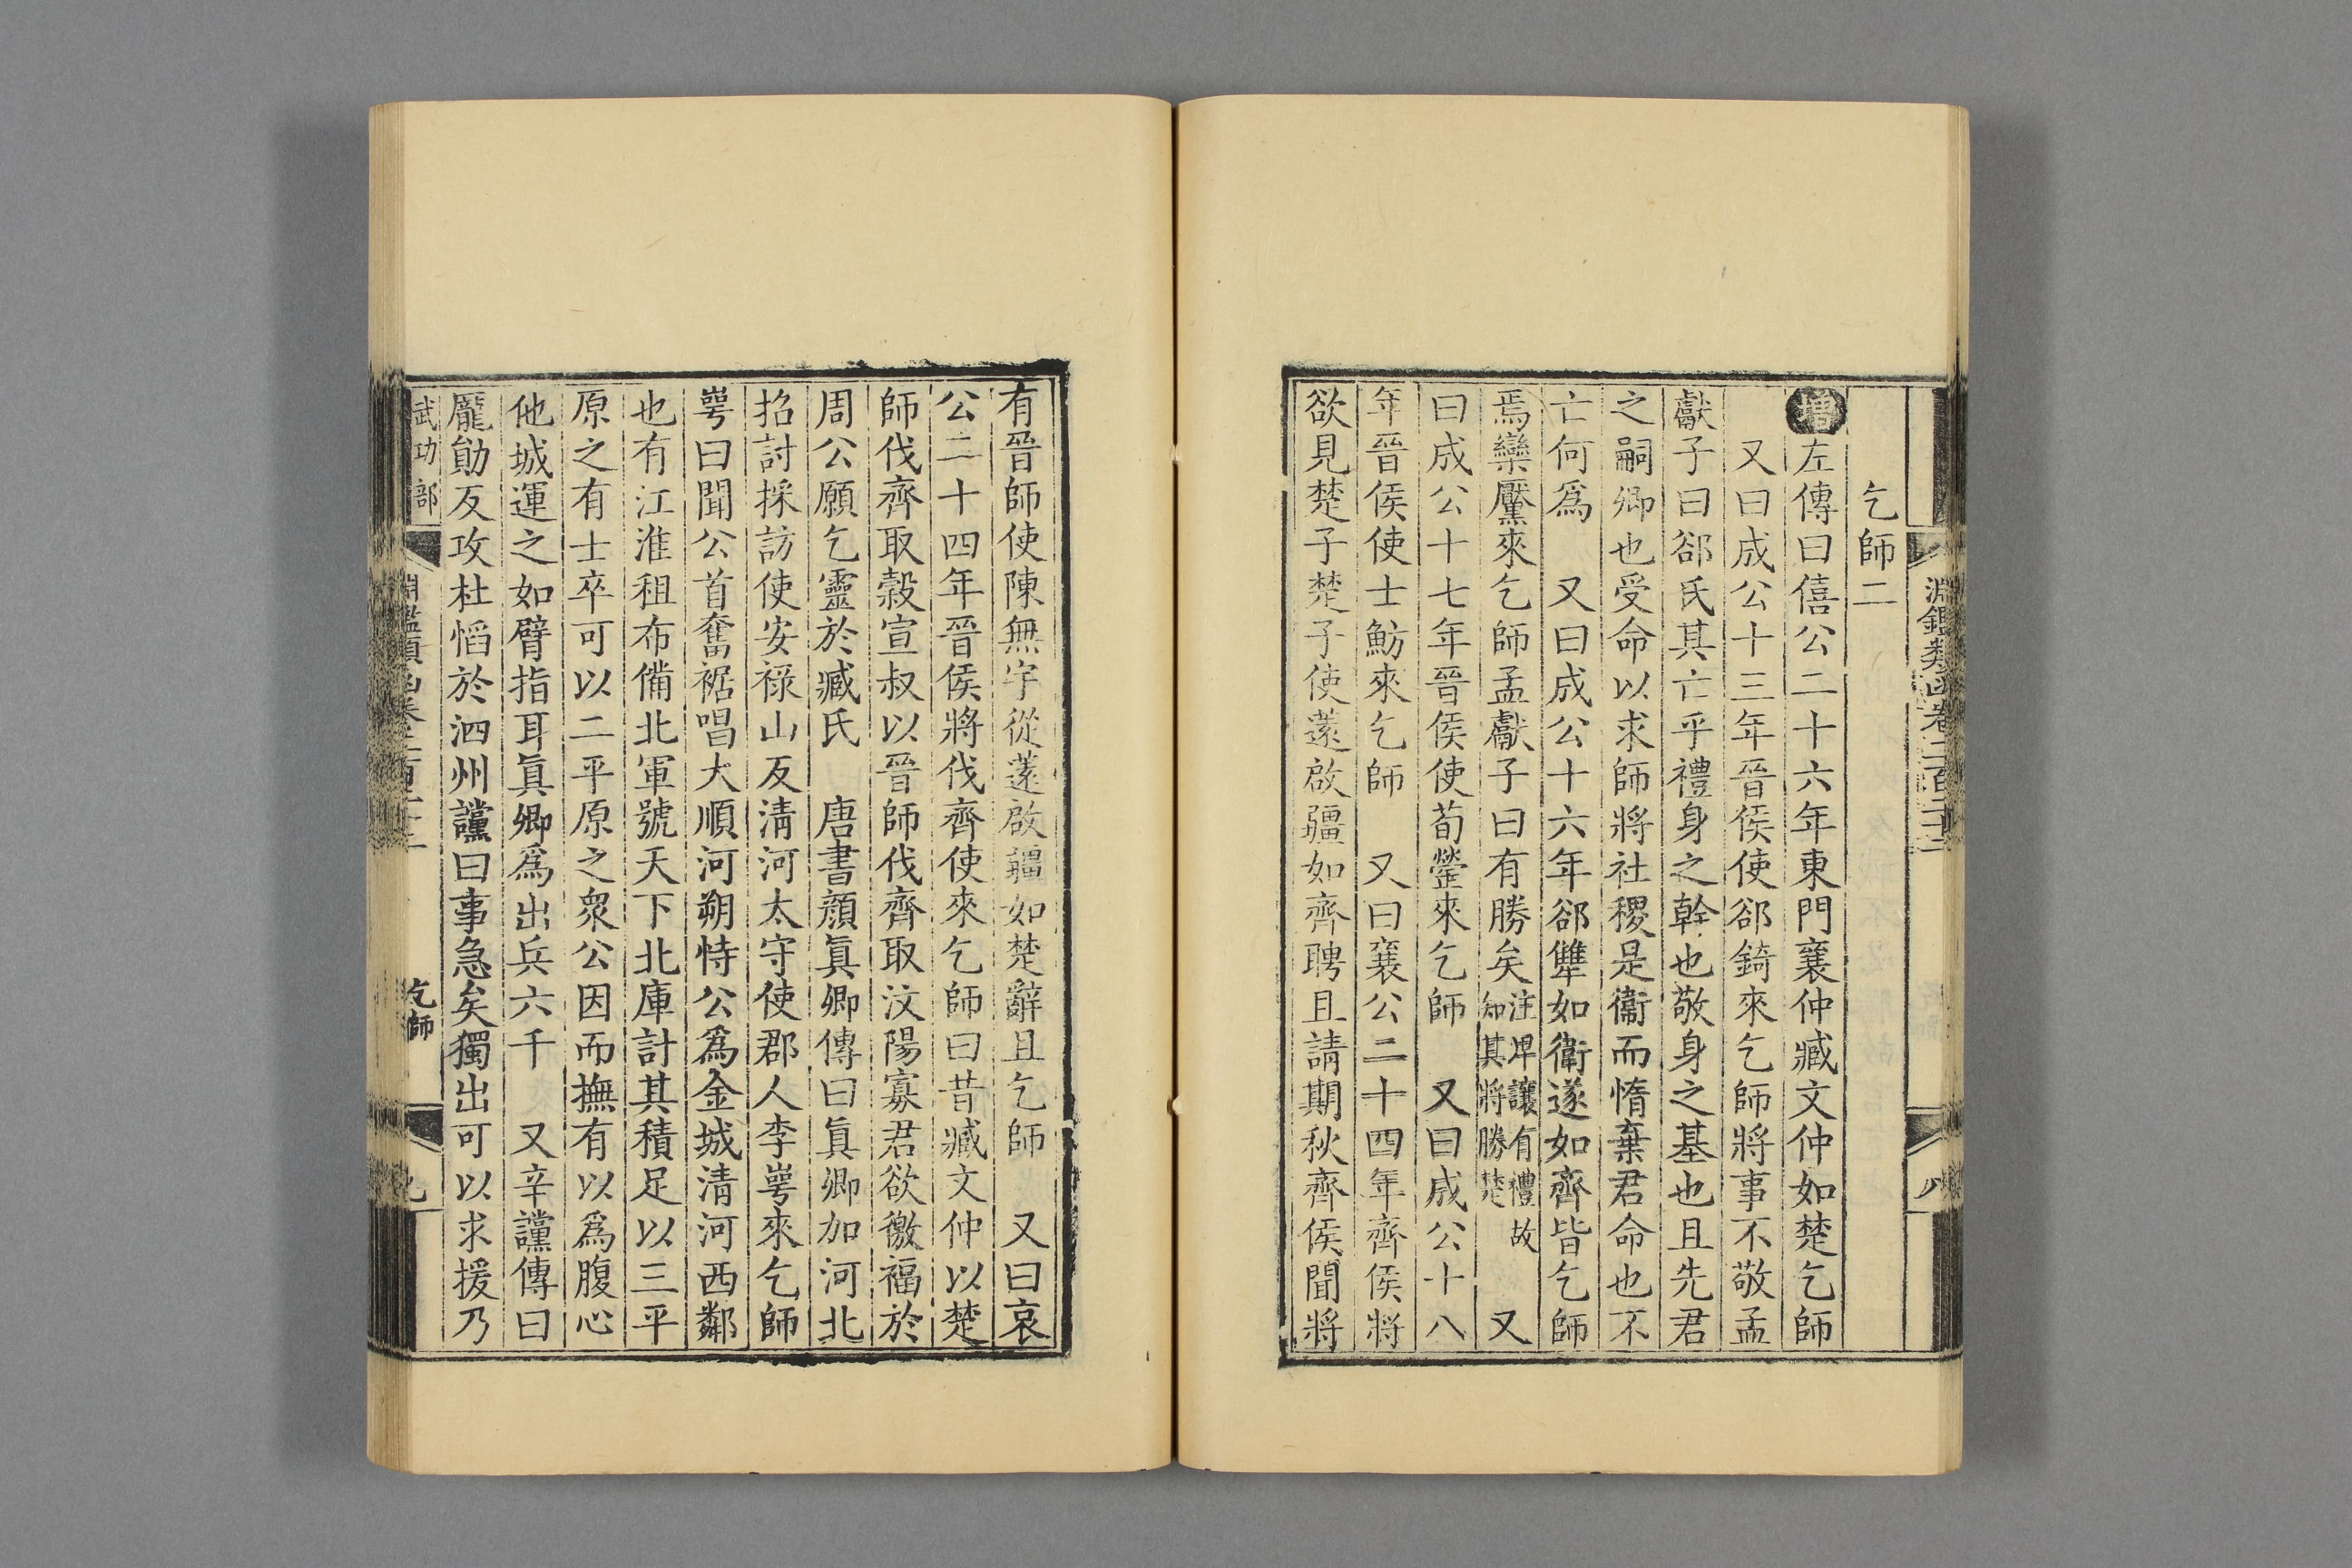 淵鑑類函卷二百二十二
八
乞師二
增左傳曰僖公二十六年東門襄仲臧文仲如楚乞師
又曰成公十三年晉侯使郤錡來乞師將事不敬孟
獻子曰郤氏其亡乎禮身之幹也敬身之基也且先君
之嗣卿也受命以求師將社稷是衞而惰棄君命也不
亡何爲　又曰成公十六年郤犨如衞遂如齊皆乞師
焉欒黶來乞師孟獻子曰有勝矣注卑讓有禮故知其將勝楚　又
曰成公十七年晉侯使荀罃來乞師　又曰成公十八
年晉侯使士魴來乞師　又曰襄公二十四年齊侯將
欲見楚子楚子使薳啟疆如齊聘且請期秋齊侯聞將
有晉師使陳無宇從薳啟疆如楚辭且乞師　又曰哀
公二十四年晉侯將伐齊使來乞師曰昔臧文仲以楚
師伐齊取穀宣叔以晉師伐齊取汶陽寡君欲徼福於
周公願乞靈於臧氏　唐書顏眞卿傳曰眞卿加河北
招討採訪使安祿山反清河太守使郡人李崿來乞師
崿曰聞公首奮裾唱大順河朔恃公爲金城清河西鄰
也有江淮租布備北軍號天下北庫計其積足以三平
原之有士卒可以二平原之衆公因而撫有以爲腹心
他城運之如臂指耳眞卿爲出兵六千　又辛讜傳曰
龐勛反攻杜慆於泗州讜曰事急矣獨出可以求援乃
武功部
淵鑑類函卷二百二十二
乞師
九